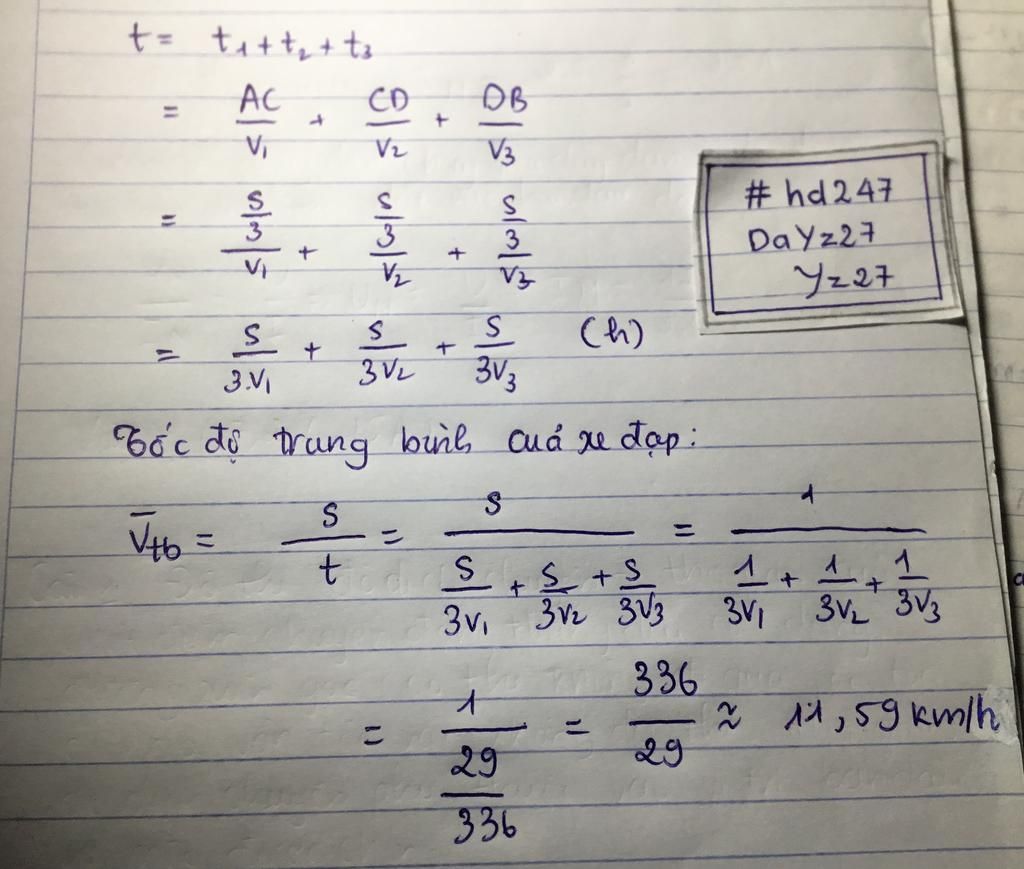 t = t₁ + t₂ + t₃
= AC/V₁ + CD/V₂ + DB/V₃
= (S/3)/V₁ + (S/3)/V₂ + (S/3)/V₃
= S/3.V₁ + S/3V₂ + S/3V₃ (h)
# hd247
DaYz27
Yz27
Tốc độ trung bình cuả xe đạp:
V̄tb = S/t = S/(S/3V₁ + S/3V₂ + S/3V₃) = 1/(1/3V₁ + 1/3V₂ + 1/3V₃)
= 1/(29/336) = 336/29 ≈ 11,59 km/h